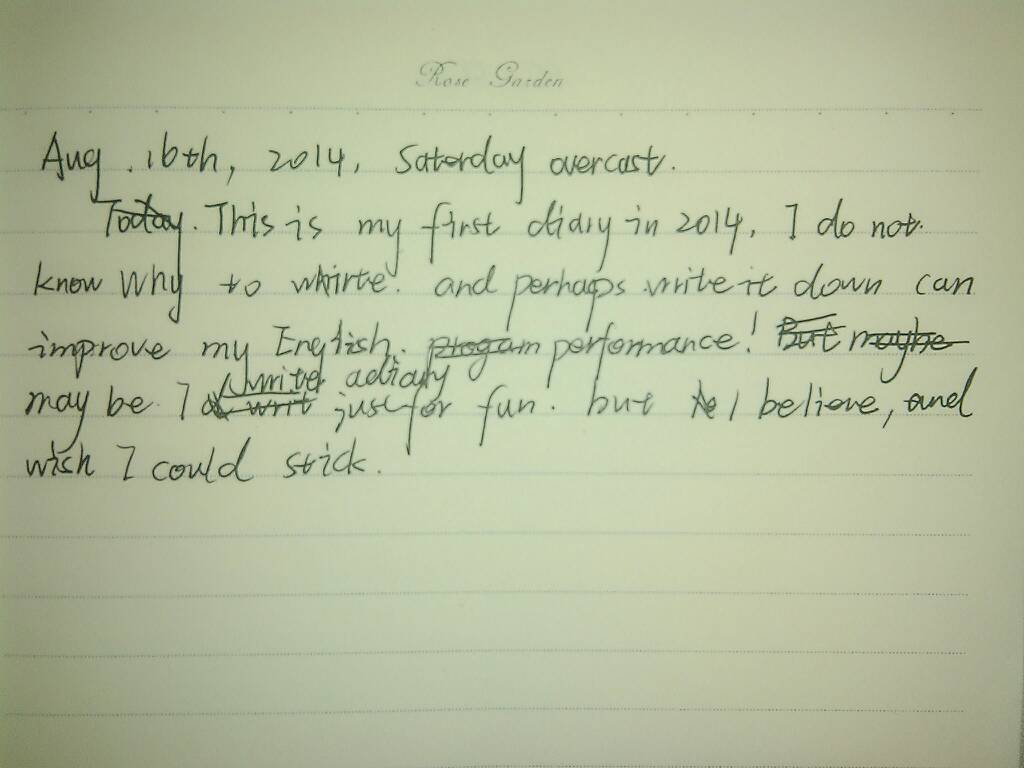 Rose Garden
Aug. 16th, 2014, Saturday overcast.
Today. This is my first diary in 2014, I do not
know why to whirte. and perhaps write it down can
improve my English. progam performance! But maybe
write adiary
may be I a writ just for fun. but I believe, and
wish I could stick.